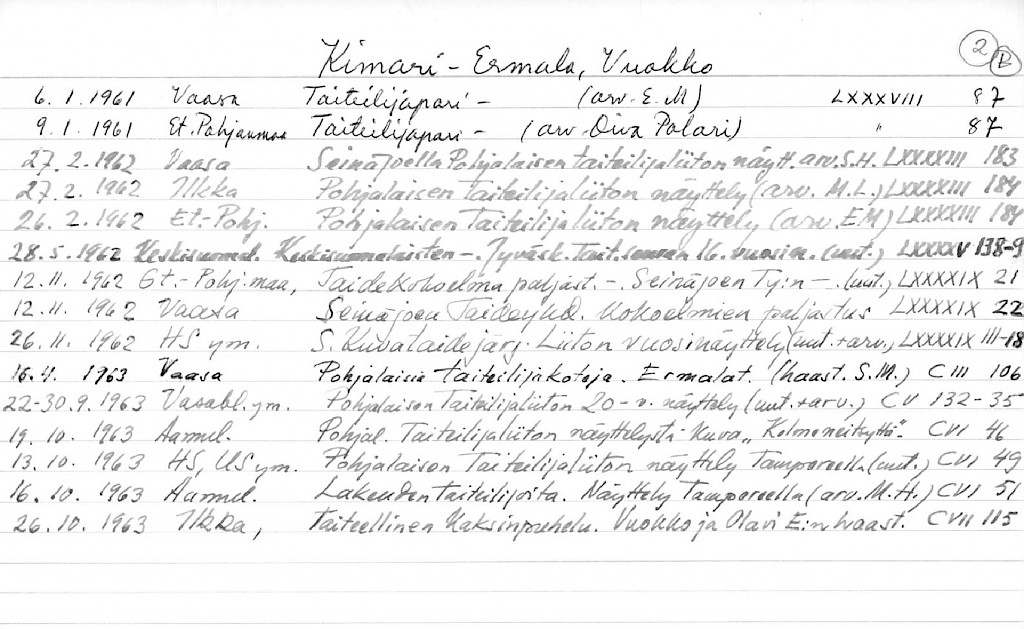 2 R
Kimari - Ermala, Vuokko
6.1.1961 Vaasa Taiteilijapari - (arv. E.M) LXXXVIII 87
9.1.1961 Et. Pohjanmaa Taiteilijapari - (arv. Oiva Polari) " 87
27.2.1962 Vaasa Seinäjoella Pohjalaisen taiteilijaliiton näytt. arv. S.H. LXXXXIII 183
27.2.1962 Ilkka Pohjalaisen Taiteilijaliiton näyttely (arv. M.L.) LXXXXIII 184
26.2.1962 Et.-Pohj. Pohjalaisen Taiteilijaliiton näyttely (arv. EM) LXXXXIII 184
28.5.1962 Keskisuomal. Keskisuomalaisten -. Jyväsk. Tait. seuran 16. vuosin. (uut.) LXXXXV 138-9
12.11.1962 Et.-Pohj.maa, Taidekokoelma paljast. -. Seinäjoen Ty:n -. (uut.) LXXXXIX 21
12.11.1962 Vaasa Seinäjoen Taideyhd. kokoelmien paljastus LXXXXIX 22
26.11.1962 HS ym. S. Kuvataidejärj. Liiton vuosinäyttely (uut.+arv., LXXXXIX 111-18
16.4.1963 Vaasa Pohjalaisia taiteilijakoteja. Ermalat. (haast. S.M.) CIII 106
22-30.9.1963 Vasabl. ym. Pohjalaisen Taiteilijaliiton 20-v. näyttely (uut.+arv.) CV 132-35
19.10.1963 Aamul. Pohjal. Taiteilijaliiton näyttelystä kuva "Kolmoneitsyttä". CVI 46
13.10.1963 HS, US ym. Pohjalaisen Taiteilijaliiton näyttely Tampereella (uut.) CVI 49
16.10.1963 Aamul. Lakeuden taiteilijoita. Näyttely Tampereella (arv. M.H.) CVI 51
26.10.1963 Ilkka, Taiteellinen kaksinpuhelu. Vuokko ja Olavi E:n haast. CVII 115